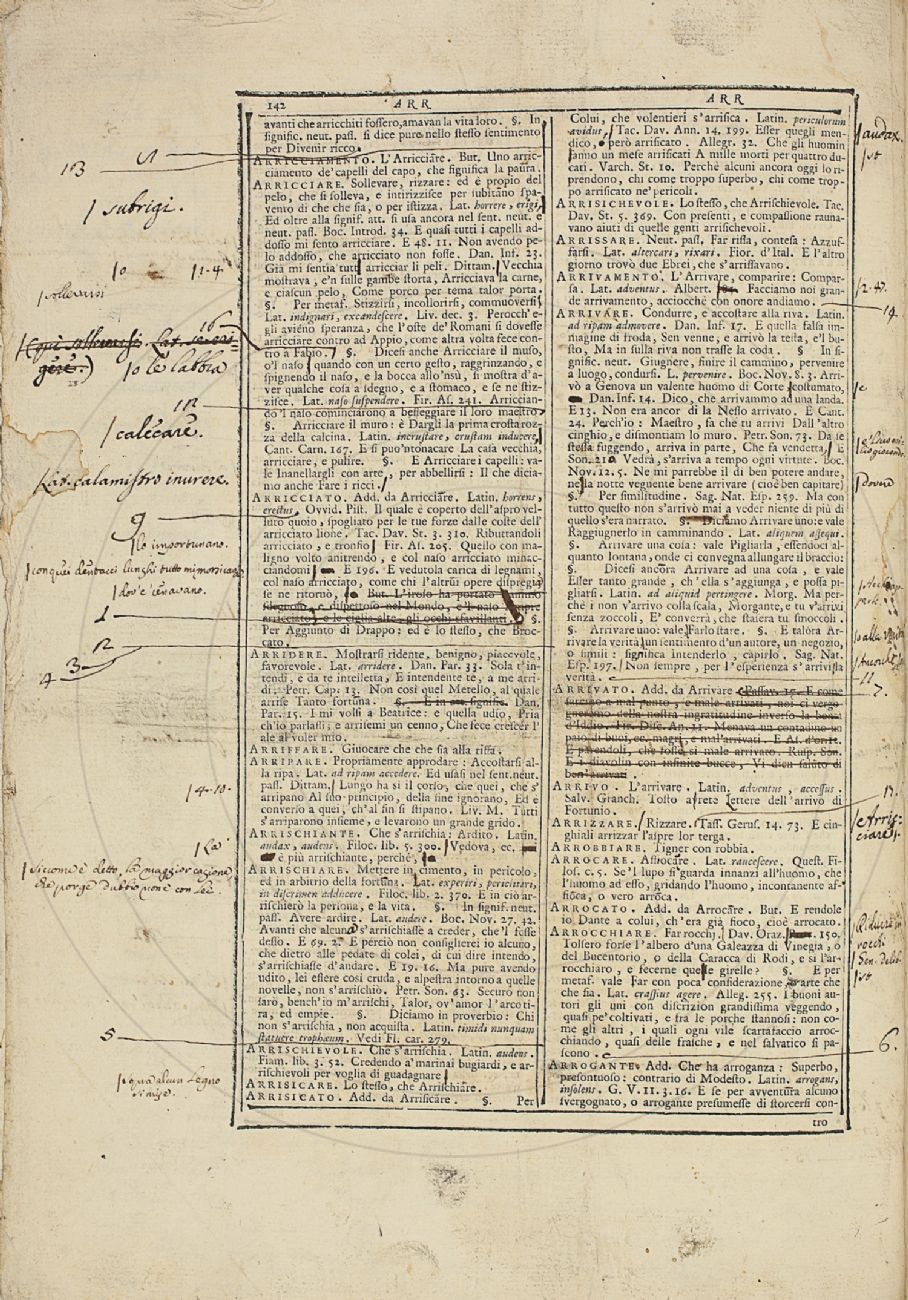 142 ARR
avanti che arricchiti fossero, amavan la vita loro. §. In
signific. neut. pass. si dice pure nello stesso sentimento
per Divenir ricco.
ARRICCIAMENTO. L'Arricciare. But. Uno arric-
ciamento de' capelli del capo, che significa la paura.
ARRICCIARE. Sollevare, rizzare: ed è propio del
pelo, che si solleva, e intirizzisce per subitano spa-
vento di che che sia, o per istizza. Lat. horrere, erigi,
Ed oltre alla signif. att. si usa ancora nel sent. neut. e
neut. pass. Boc. Introd. 34. E quasi tutti i capelli ad-
dosso mi sento arricciare. E 48. 11. Non avendo pe-
lo addosso, che arricciato non fosse. Dan. Inf. 23.
Già mi sentia tutti arricciar li peli. Dittam. Vecchia
mostrava, e'n sulle gambe storta, Arricciava la carne,
e ciascun pelo, Come porco per tema talor porta,
§. Per metaf. Stizzirsi, incollorirsi, commuoversi
Lat. indignari, excandescere. Liv. dec. 3. Perocch' e-
gli avieno speranza, che l'oste de' Romani si dovesse
arricciare contro ad Appio, come altra volta fece con-
tro a Fabio. §. Dicesi anche Arricciare il muso,
o'l naso quando con un certo gesto, raggrinzando, e
spignendo il naso, e la bocca allo'nsù, si mostra d'a-
ver qualche cosa a sdegno, e a stomaco, e se ne stiz-
zisce. Lat. naso suspendere. Fir. As. 241. Arriccian-
do'l naso cominciarono a beffeggiare il loro maestro
§. Arricciare il muro: è Dargli la prima crosta roz-
za della calcina. Latin. incrustare, crustam inducere,
Cant. Carn. 167. E si può'ntonacare La casa vecchia,
arricciare, e pulire. §. E Arricciare i capelli: va-
le Inanellargli con arte, per abbellirsi: Il che dicia-
mo anche Fare i ricci.
ARRICCIATO. Add. da Arricciare. Latin. horrens,
erectus, Ovvid. Pist. Il quale è coperto dell'aspro vel-
luto quoio, spogliato per le tue forze dalle coste dell'
arricciato lione. Tac. Dav. St. 3. 310. Ributtandoli
arricciato, e tronfio Fir. As. 205. Quello con ma-
ligno volto anitrendo, e col naso arricciato minac-
ciandomi E 196. E vedutola carica di legnami,
col naso arricciato, come chi l'altrui opere dispregia
se ne ritornò, But. L'iroso ha portato animo
sdegnoso, e dispettoso nel Mondo, e'l naso sempre
arricciato, e le ciglia alte, gli occhi sfavillanti. §.
Per Aggiunto di Drappo: ed è lo stesso, che Broc-
cato.
ARRIDERE. Mostrarsi ridente, benigno, piacevole,
favorevole. Lat. arridere. Dan. Par. 33. Sola t'in-
tendi, e da te intelletta, E intendente te, a me arri-
di. Petr. Cap. 13. Non così quel Metello, al quale
arrise Tanto fortuna. §. E in att. signific. Dan.
Par. 15. I mi volsi a Beatrice: e quella udìo, Pria
ch'io parlassi, e arrisemi un cenno, Che fece crescer l'
ale al voler mio.
ARRIFFARE. Giuocare che che sia alla riffa.
ARRIPARE. Propriamente approdare: Accostarsi al-
la ripa. Lat. ad ripam accedere. Ed usasi nel sent. neut.
pass. Dittam. Lungo ha si il corso, che quei, che s'
arripano Al suo principio, della fine ignorano, Ed e
converso a quei, ch'al fin si stipano. Liv. M. Tutti
s'arriparono insieme, e levarono un grande grido.
ARRISCHIANTE. Che s'arrischia: Ardito. Latin.
audax, audens. Filoc. lib. 5. 300. Vedova, ec.
è più arrischiante, perchè,
ARRISCHIARE. Mettere in cimento, in pericolo,
ed in arbitrio della fortuna. Lat. experiri, periclitari,
in discrimen adducere. Filoc. lib. 2. 370. E in ciò ar-
rischierò la persona, e la vita. §. In signif. neut.
pass. Avere ardire. Lat. audere. Boc. Nov. 27. 42.
Avanti che alcuno s'arrischiasse a creder, che'l fosse
desso. E 69. 2. E perciò non consiglierei io alcuno,
che dietro alle pedate di colei, di cui dire intendo,
s'arrischiasse d'andare. E 19. 16. Ma pure avendo
udito, lei essere così cruda, e alpestra intorno a quelle
novelle, non s'arrischiò. Petr. Son. 63. Securo non
sarò, bench'io m'arrischi, Talor, ov'amor l'arco ti-
ra, ed empie. §. Diciamo in proverbio: Chi
non s'arrischia, non acquista. Latin. timidi nunquam
statuere trophæum. Vedi Fl. car. 279.
ARRISCHIEVOLE. Che s'arrischia. Latin. audens.
Fiam. lib. 3. 52. Credendo a' marinai bugiardi, e ar-
rischievoli per voglia di guadagnare
ARRISICARE. Lo stesso, che Arrischiare.
ARRISICATO. Add. da Arrisicare. §. Per
ARR
Colui, che volentieri s'arrisica. Latin. periculorum
avidus, Tac. Dav. Ann. 14. 199. Esser quegli men-
dico, però arrisicato. Allegr. 32. Che gli huomin
fanno un mese arrisicati A mille morti per quattro du-
cati. Varch. St. 10. Perchè alcuni ancora oggi lo ri-
prendono, chi come troppo superbo, chi come trop-
po arrisicato ne' pericoli.
ARRISICHEVOLE. Lo stesso, che Arrischievole. Tac.
Dav. St. 5. 369. Con presenti, e compassione rauna-
vano aiuti di quelle genti arrisichevoli.
ARRISSARE. Neut. pass. Far rissa, contesa: Azzuf-
farsi. Lat. altercari, rixari. Fior. d'Ital. E l'altro
giorno trovò due Ebrei, che s'arrissavano.
ARRIVAMENTO. L'Arrivare, comparire: Compar-
sa. Lat. adventus. Albert. Facciamo noi gran-
de arrivamento, acciocchè con onore andiamo.
ARRIVARE. Condurre, e accostare alla riva. Latin.
ad ripam admovere. Dan. Inf. 17. E quella falsa im-
magine di froda, Sen venne, e arrivò la testa, e'l bu-
sto, Ma in sulla riva non trasse la coda. § In si-
gnific. neut. Giugnere, finire il cammino, pervenire
a luogo, condursi. L. pervenire. Boc. Nov. 8. 3. Arri-
vò a Genova un valente huomo di Corte costumato,
Dan. Inf. 14. Dico, che arrivammo ad una landa.
E 13. Non era ancor di là Nesso arrivato. E Cant.
24. Perch'io: Maestro, fa che tu arrivi Dall'altro
cinghio, e dismontiam lo muro. Petr. Son. 73. Da se
stessa fuggendo, arriva in parte, Che fa vendetta, E
Son. 210 Vedrà, s'arriva a tempo ogni virtute. Boc.
Nov. 12. 5. Ne mi parrebbe il di ben potere andare,
nella notte veguente bene arrivare (cioè ben capitare)
§. Per similitudine. Sag. Nat. Esp. 259. Ma con
tutto questo non s'arrivò mai a veder niente di più di
quello s'era narrato. §. Diciamo Arrivare uno: e vale
Raggiugnerlo in camminando. Lat. aliquem assequi.
§. Arrivare una cosa: vale Pigliarla, essendoci al-
quanto lontana, onde ci convenga allungare il braccio:
§. Dicesi ancora Arrivare ad una cosa, e vale
Esser tanto grande, ch'ella s'aggiunga, e possa pi-
gliarsi. Latin. ad aliquid pertingere. Morg. Ma per-
chè i non v'arrivo colla scala, Morgante, e tu v'arrivi
senza zoccoli, E' converrà, che staiera tu smoccoli.
§. Arrivare uno: vale Farlo stare. §. E talora Ar-
rivare la verità un sentimento d'un autore, un negozio,
o simili: significa intenderlo, capirlo. Sag. Nat.
Esp. 197. Non sempre, per l'esperienza s'arriva la
verità.
ARRIVATO. Add. da Arrivare. Passav. 15. E come
farcito a mal punto, e male arrivati, noi ci vergo-
gneremo della nostra ingratitudine inverso la bontà
d'Iddio. Fir. Disc. An. 11. Menava un contadino un
paio di buoi, ec. magri, e mal'arrivati. E As.
E parendoli, che fosse si male arrivato. Rusp. Son.
E i diavolin con infinite bucce, Vi dien saluto di
ben'arrivati.
ARRIVO. L'arrivare. Latin. adventus, accessus.
Salv. Granch. Tosto aprete Lettere dell'arrivo di
Fortunio.
ARRIZZARE. Rizzare. Tass. Gerus. 14. 73. E cin-
ghiali arrizzar l'aspre lor terga.
ARROBBIARE. Tigner con robbia.
ARROCARE. Affiocare. Lat. rancescere. Quest. Fi-
los. c. 5. Se'l lupo si guarda innanzi all'huomo, che
l'huomo ad esso, gridando l'huomo, incontanente af-
fioca, o vero arroca.
ARROCATO. Add. da Arrocare. But. E rendole
io Dante a colui, ch'era già fioco, cioè arrocato.
ARROCCHIARE. Far rocchi. Dav. Oraz. 150.
Tolsero forse l'albero d'una Galeazza di Vinegia, o
del Bucentorio, o della Caracca di Rodi, e si l'ar-
rocchiaro, e fecerne queste girelle? §. E per
metaf. vale Far con poca considerazione, arte che
che sia. Lat. crassius agere. Alleg. 255. I buoni au-
tori gli uni con discrizion grandissima veggendo,
quasi pe' coltivati, e fra le porche stannosi: non co-
me gli altri, i quali ogni vile scartafaccio arroc-
chiando, quasi delle frasche, e nel salvatico si pa-
scono.
ARROGANTE. Add. Che ha arroganza: Superbo,
presontuoso: contrario di Modesto. Latin. arrogans,
insolens. G. V. 11. 3. 16. E se per avventura alcuno
svergognato, o arrogante presumesse di storcersi con-
tro
13
subrigi.
sollevarsi
16
o le labbia
calecare.
Lat. calamistro inurere.
9
lo importunano.
1
12
3
4
4. 10.
La
siccome è detto, la maggior cagione
5
qua alcun Legno
audax.
14.
dovere
11
7.
13.
Arris-
ciare
6.